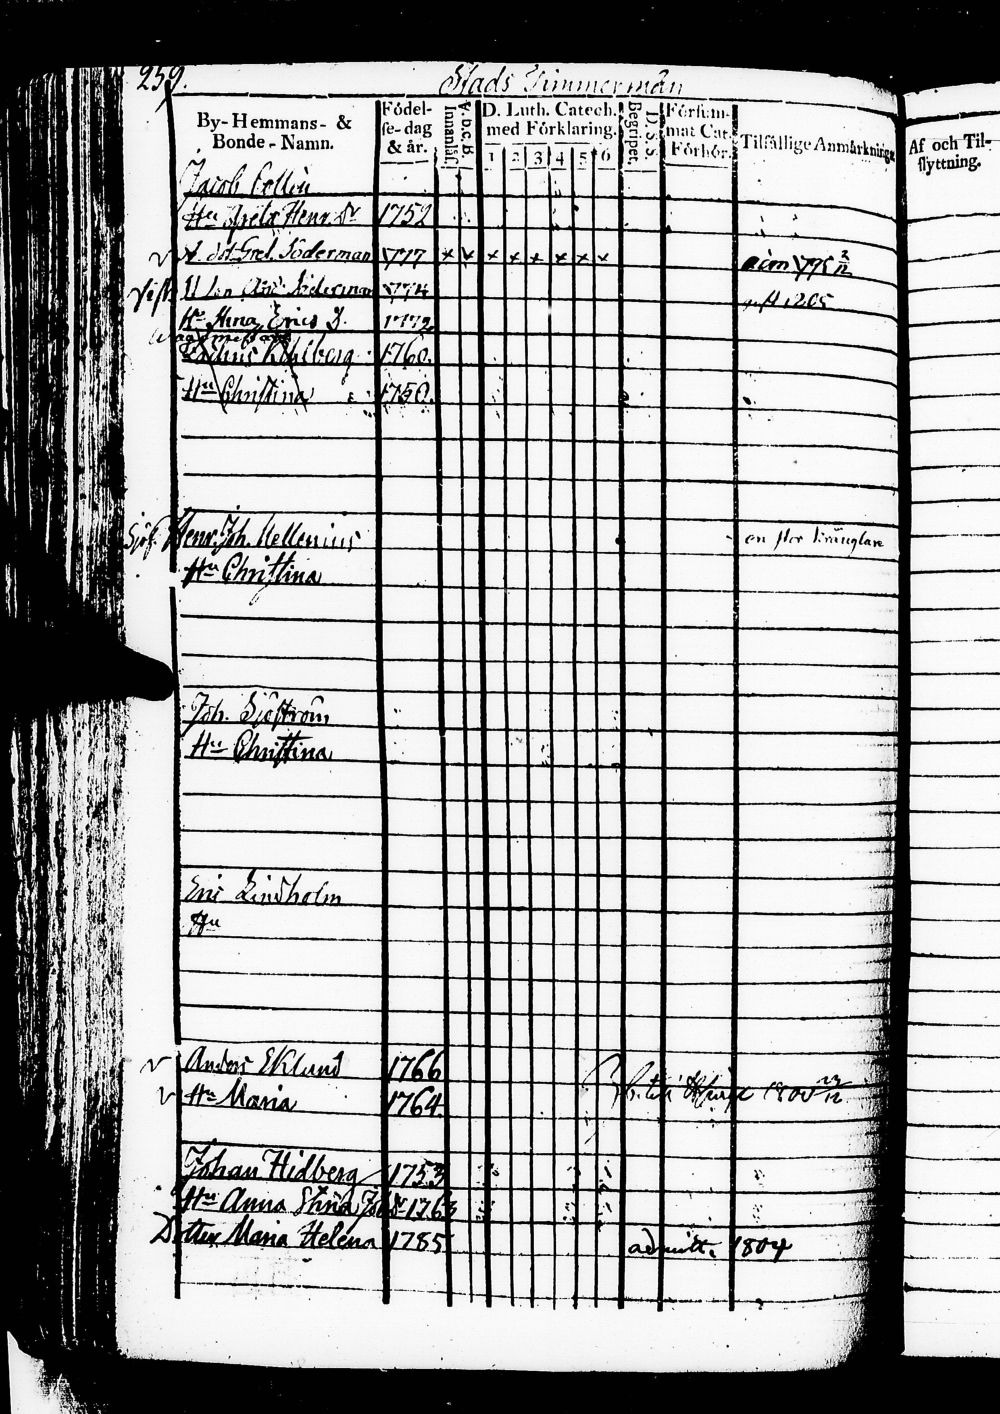 259.
Stads Timmermän
By-Hemmans- & Bonde-Namn.
Födel-se-dag & år.
Innanläsn.
A.b.c.B.
D. Luth. Catech. med Förklaring.
1 2 3 4 5 6
Begripet.
D. S. S
Försum-mat Cat. Förhör.
Tilfällige Anmärkningar
Af och Til-flyttning.
Jacob
Hu Greta Henr. Dr 1752
v Gret. Söderman 777 x x x x x x x x 1795 2/12
Söderman 1774
Hu Anna Erics D. 1772
Kihlberg 1760.
Hu Christina 1750.
Sjöf. Henr. Joh. Mellenius en stor kränglare
Hu Christina
Joh. Sjöström
Hu Christina
Eric Lindholm
Hu
v Anders Eklund 1766
v Hu Maria 1764 1800 23/12
Johan Hidberg 1753
Hu Anna Stina Joh Dr 1763
Dotter Maria Helena 1785 admitt. 1804